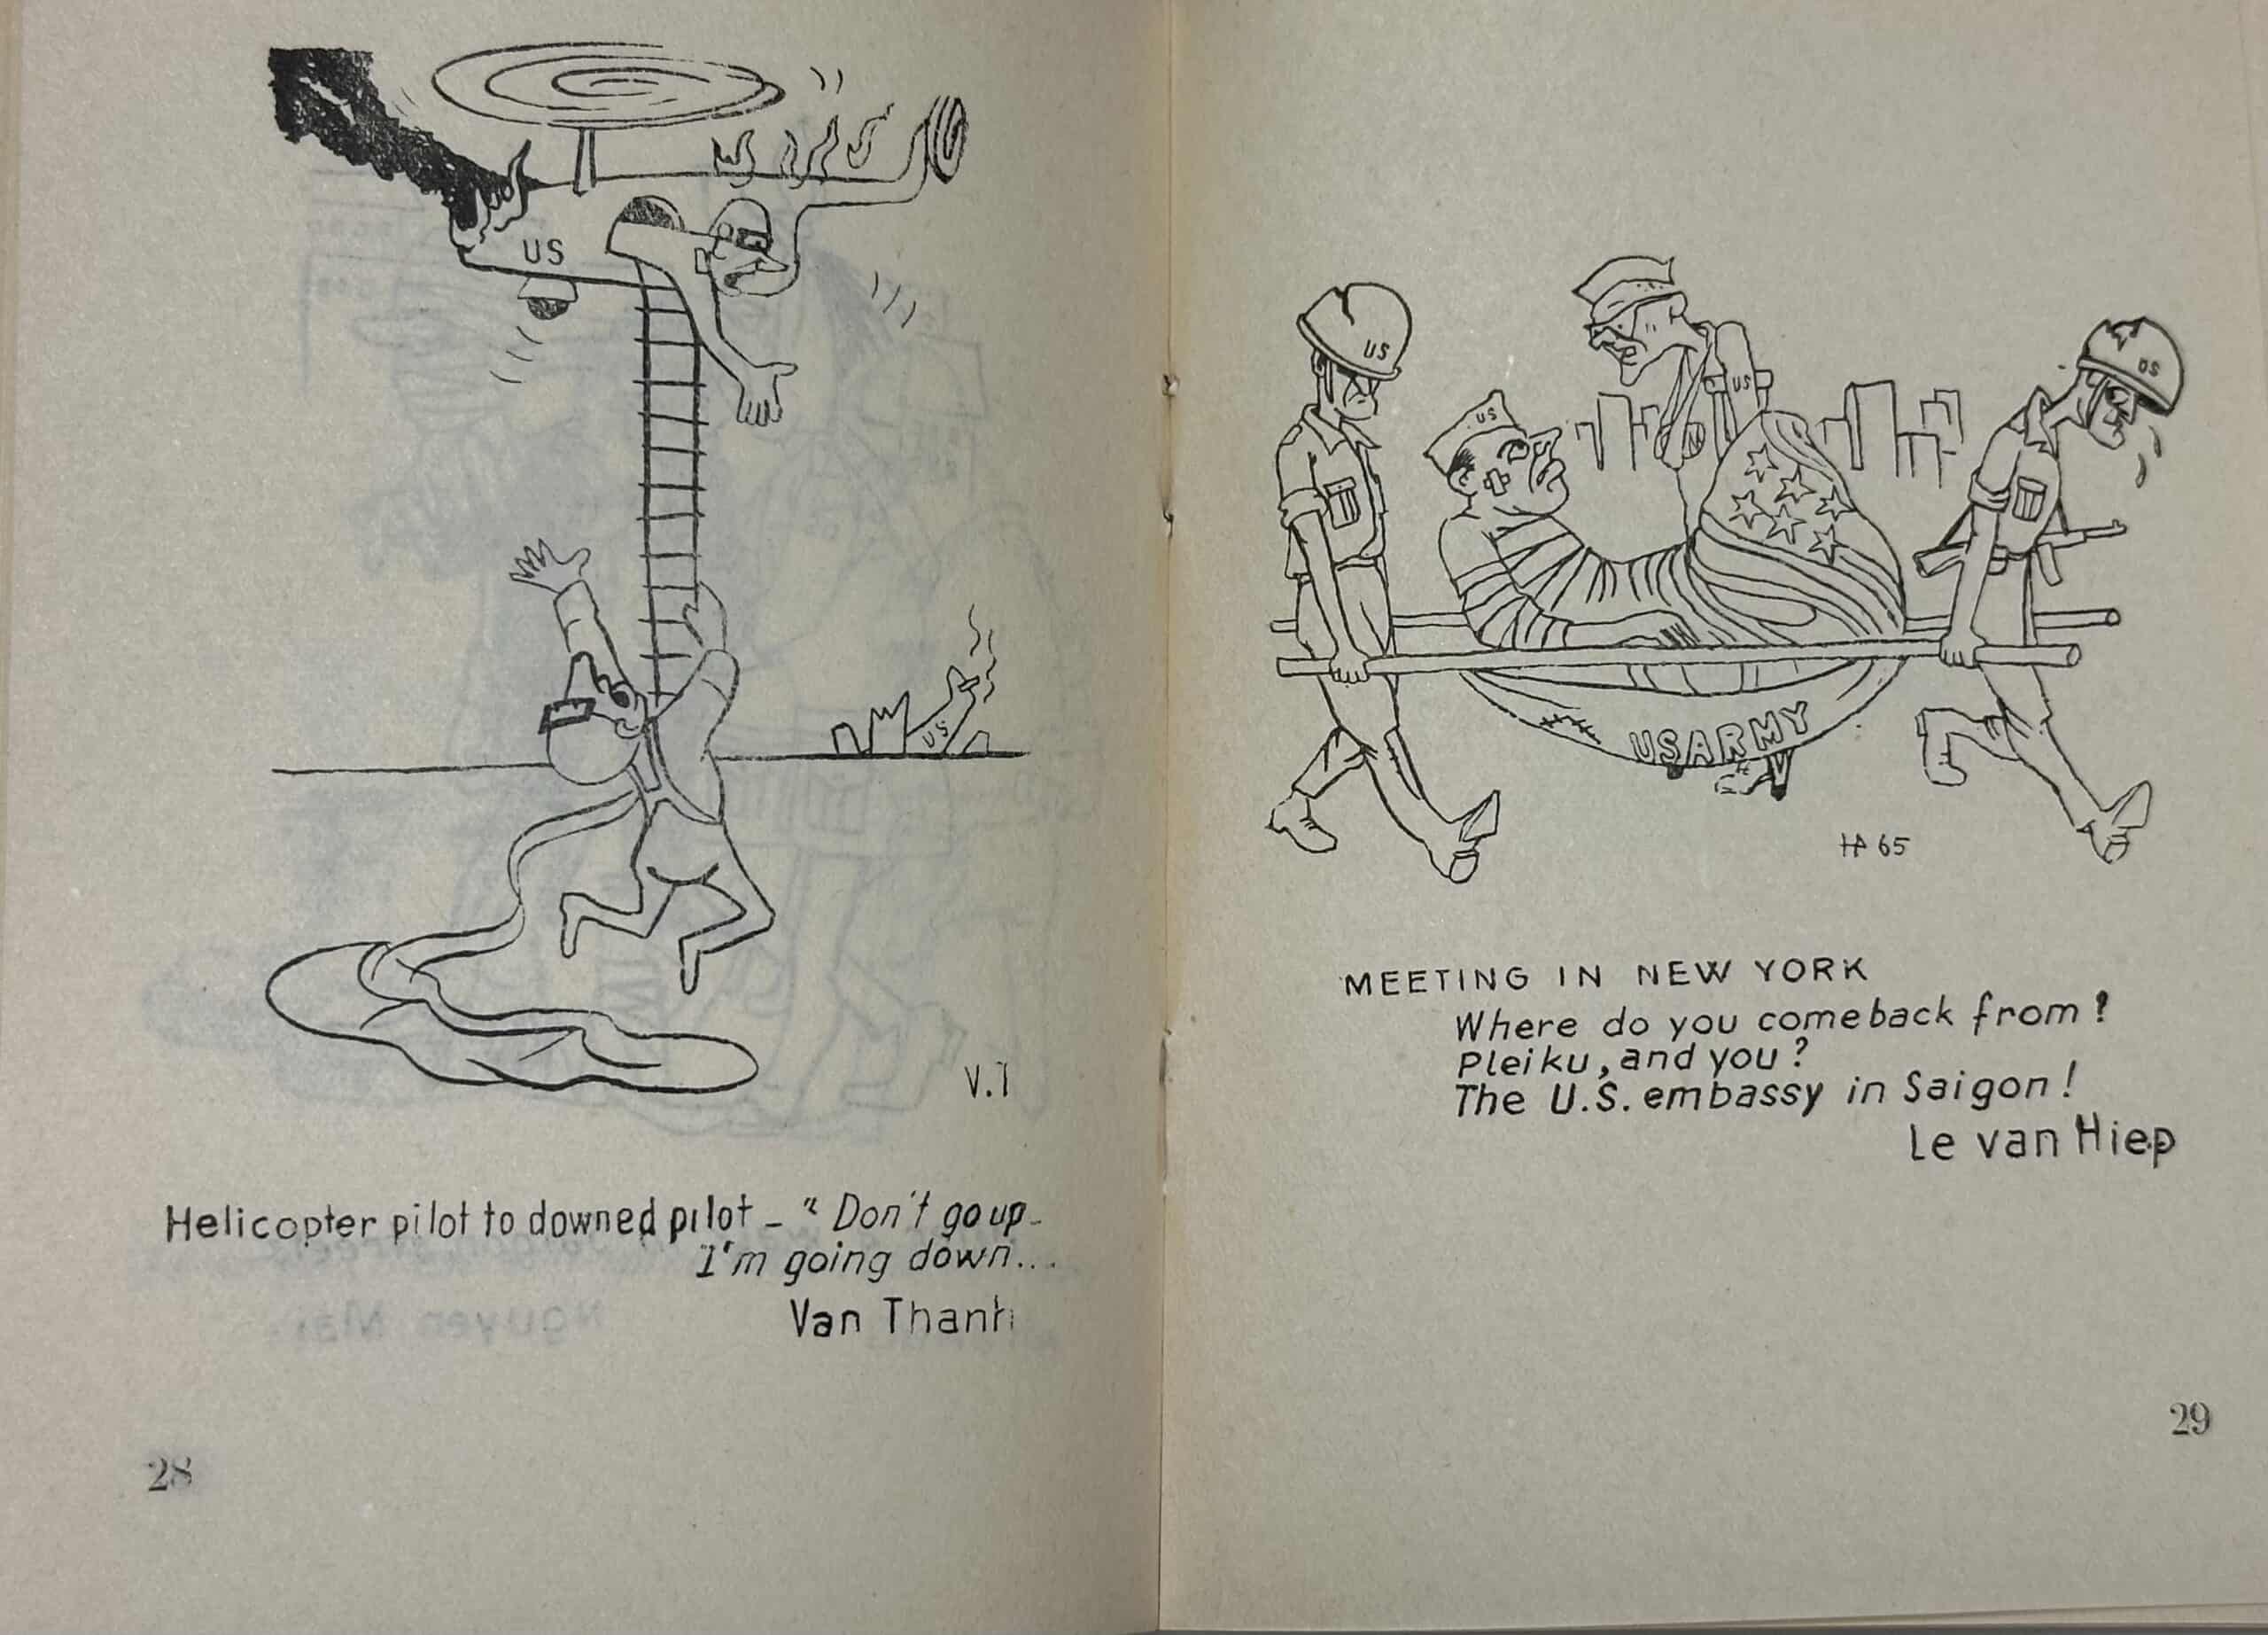 US
US
V.T
Helicopter pilot to downed pilot - "Don't go up-
I'm going down...
Van Thanh
28
US
US
US
US
USARMY
HP 65
MEETING IN NEW YORK
Where do you comeback from?
Pleiku, and you?
The U.S. embassy in Saigon!
Le van Hiep
29